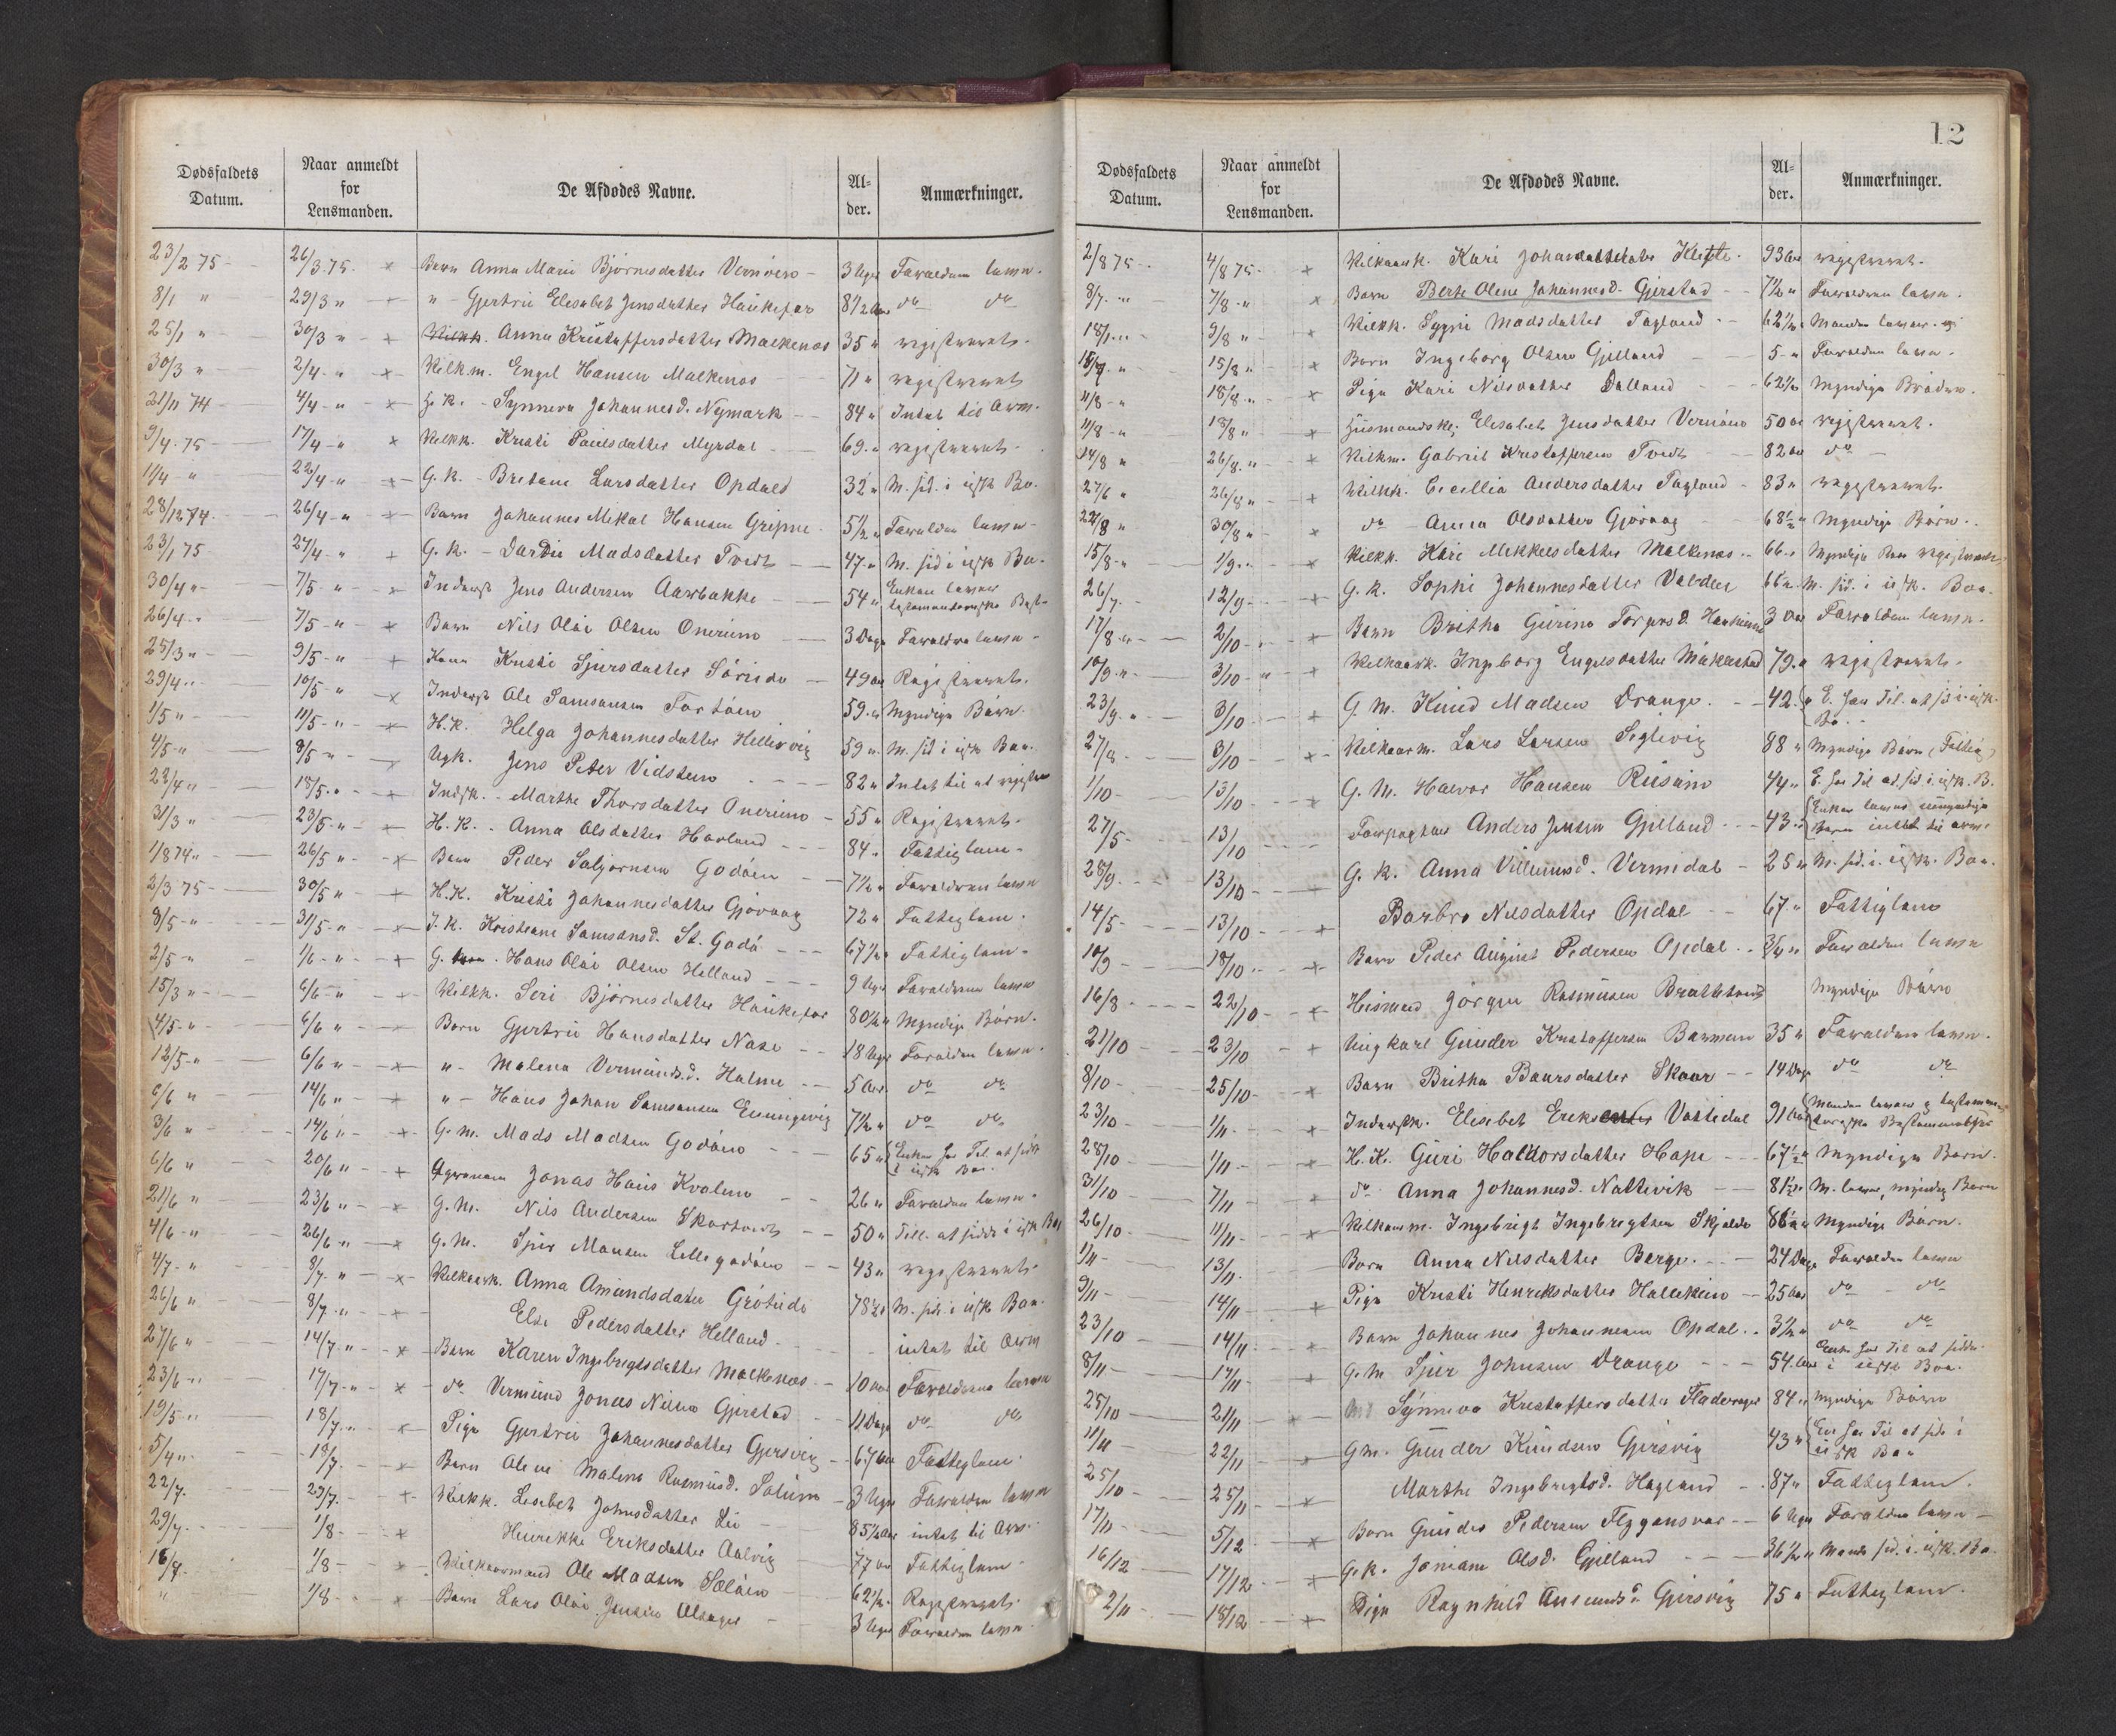 Dødsfaldets Datum. Naar anmeldt for Lensmanden. De Afdødes Navne. Al-der. Anmærkninger.
23/2 75 26/3 75 Barn Anna Marie Bjørnesdatter Vernøen 3 Uger Forældren lever
8/1 " 29/3 " " Gjertrü Elesabet Jensdatter Haükefær 8 1/2 Aar do do
25/1 " 30/3 " Anna Kristoffersdatter Malkenæs 35 " registreret
30/3 " 2/4 " Kelkm. Engel Hansen Malkenæs 71 " registreret
21/11 74 4/4 " H.k. Synneva Johannesd. Nymark 84 " Intet til Arv
9/4 75 17/4 " Kelkk. Kristi Paülsdatter Myrdal 69 " registreret
1/4 " 22/4 " G.k. Britane Larsdatter Opdal 32 " M. sid. i üsk Bo
28/12 74 26/4 " Barn Johannes Mikal Hansen Gripne 5 1/2 " Forældren lever
23/1 75 27/4 " G.k. Dardie Madsdatter Tvedt 47 " M. sid i üsk Bo
30/4 " 7/5 " Inderst Jens Andersen Aarbakke 54 " Enken lever
26/4 " 7/5 " Barn Nils Olai Olsen Onerüm 3 Dage Forældre lever
25/3 " 9/5 " Kone Kristi Sjursdatter 49 Aar Registreret
29/4 " 10/5 " Inderst Ole Samsonsen 59 " Myndige Børn
1/5 " 11/5 " H.k. Helga Johannesdatter Hellervig 59 " M. sid i üsk Boe
4/5 " 8/5 " Ugk. Jens Peter Vidsteen 82 " Intet til at registrere
23/4 " 18/5 " Indsk. Marthe Thorsdatter Onerüm 55 " Registreret
31/3 " 23/5 " H.K. Anna Olsdatter Havland 84 " Fattiglem
1/8 74 26/5 " Barn Peder Salgjørnsen Godøen 7 1/2 " Forældren lever
2/3 75 30/5 " H.K. Kristi Johannesdatter Gjøvaag 72 " Fattiglem
8/5 " 31/5 " I.k. Kristiane Samsonsd. St. Godø 67 1/2 " Fattiglem
2/5 " 1/6 " G. Hans Olai Olsen Helland 9 Uger Forældrene lever
15/3 " 6/6 " Kelkk. Seri Bjørnesdatter Haükefær 80 1/2 " Myndige Børn
4/5 " 6/6 " Barn Gjertrü Hansdatter Nase 18 Uger Forældren lever
12/5 " 6/6 " " Malena Vermündsd. Holme 5 Aar do do
6/6 " 14/6 " " Hans Johan Samsonsen Eüningevig 7 1/2 " do do
3/6 " 14/6 " G.m. Mads Madsen Godøen 65 " Enken har Til. at sidde i üsk Boe
6/6 " 20/6 " Jonas Haüs Kvalem 26 " Forældren lever
21/6 " 23/6 " G.m. Nils Andersen Skortvedt 50 " Till. at sidde i üsk Boe
4/6 " 26/6 " G.m. Sjur Monsen Lillegodøen 43 " registreret
4/7 " 8/7 " Kelkaark. Anna Amündsdatter Grøtüde 78 1/2 " M. sid. i üsk Boe
26/6 " 8/7 " Else Pedersdatter Helland intet til Arv
27/6 " 14/7 " Barn Karen Ingebregtsdatter Malkenæs 10 Aar Forældrene lever
23/6 " 17/7 " do Vermünd Jonees Nilsen Gjerstad 11 Dage do do
19/5 " 18/7 " Pige Gjertrü Johannesdatter Gjersvig 67 Aar Fattiglem
5/4 " 18/7 Barn Olene Malene Rasmüsd. Solüm 3 Uger Forældren lever
22/7 29/7 Kelkk. Lisebet Johnsdatter Lie 85 1/2 Aar intet til Arv
29/7 1/8 Henrekke Eriksdatter Aalvig 77 Aar Fattiglem
16/7 1/8 Kelkaarmand Ole Madsen Sæløen 62 1/2 Registreret
" 1/8 Barn Lars Olai Jensen Alsager 3 Uger Forældren lever
12
Dødsfaldets Datum. Naar anmeldt for Lensmanden. De Afdødes Navne. Al-der. Anmærkninger.
2/8 75 4/8 75 Kelkaark. Kari 93 Aar registreret
8/7 " 7/8 " Barn Berte Olene Johannesd. Gjerstad 7 1/2 " Forældren lever
18/7 " 9/8 " Kelkk. Sygni Madsdatter Tagland 62 1/2 " Manden lever
15/8 " Barn Ingeborg Olsen Gjelland 5 " Forældren lever
11/8 " 18/8 " Pige Kari Nilsdatter Dalland 62 1/2 Myndige Brødre
11/8 " 18/8 " Hüsmandsk. Elesabet Jensdatter Vernøen 50 Aar registreret
14/8 " 26/8 " Kelkm. Gabriel Kristoffersen Tvedt 82 Aar do
27/6 " 26/8 " Kelkk. Cecellia Andersdatter Tagland 83 " registreret
22/8 " 30/8 " do Anna Olsdatter Gjøvaag 68 1/2 " Myndige Børn
15/8 " 1/9 " Kelkk. Kari Mikkelsdatter Malkenæs 66 " Myndige
26/7 12/9 G.k. Sophi Johannesdatter Valdeer 66 " M. sid. i üsk. Boe
17/8 " 2/10 Barn Britha Gürine 3 Aar Forældren lever
10/9 " 3/10 " Kelkaark. Ingeborg Engelsdatter Malkestad 79 " registreret
23/9 " 3/10 G.M. Knüd Madsen Drange 42 " E. har Til. at sid i üsk. Bo
27/8 3/10 Kelkaarm. Lars Larsen Seglevig 88 " Myndige Børn (Fattig)
1/10 13/10 G.M. Halvor Hansen Rüsüm 44 " E. har Til at sid i üsk. B.
27/5 13/10 Forpagter Anders Jensen Gjelland 43 " Enken lever ümyndige Børn intet til Arv
28/9 13/10 G.k. Anna Villumsd. Vermedal 25 " M. sid. i üsk. Boe
14/5 13/10 Barbro Nilsdatter Opdal 67 " Fattiglem
10/9 18/10 Barn Peder Aügüst Pedersen Opdal 3/4 " Forældren lever
16/8 22/10 Hüsmand Jørgen Rasmüsen Brattetveit Myndige Børn
21/10 23/10 Ungkarl Günder Kristoffersen Bærmen 35 " Forældren lever
8/10 25/10 Barn Britha Baarsdatter Skaar 14 Dage do do
23/10 1/11 Indersk. Elisebet Eriks Vattedal 91 Aar Manden lever
28/10 1/11 H.K. Güri Haldorsdatter Hope 67 1/2 " Myndige Børn
31/10 7/11 do Anna Johannesd. Nattevik 81 1/2 " M. lever, myndig Børn
26/10 11/11 Kelkaarm. Ingebrigt Ingebregtsen Skjelde 86 1/2 " Myndige Børn
1/11 13/11 Barn Anna Nilsdatter Berge 24 Dage Forældren lever
9/11 14/11 Pige Kristi Henriksdatter Hallekeien 25 Aar do do
23/10 14/11 Barn Johannes Johannesen Opdal 3 1/2 " do do
8/11 17/11 G.m Sjur Johnsen Drange 54 Aar Enken har Til at sidde i üsk Boe
25/10 21/11 Synneva Kristoffersdatter Fladerager 84 " Myndige Børn
11/11 22/11 Gm. Günder Knüdsen Gjersvig 43 " Enk har Til at sid i üsk Boe
25/10 25/11 Marthe Ingebregtsd. Hagland 87 " Fattiglem
17/11 5/12 Barn Günder Pedersen Flygansvær 6 Uger Forældre lever
16/12 17/12 G.k. Joniane Olsd. Gjelland 36 1/2 " Mand sid. i üsk. Boe
2/11 18/12 Pige Ragnhild Amundsd. Gjersvig 75 " Fattiglem